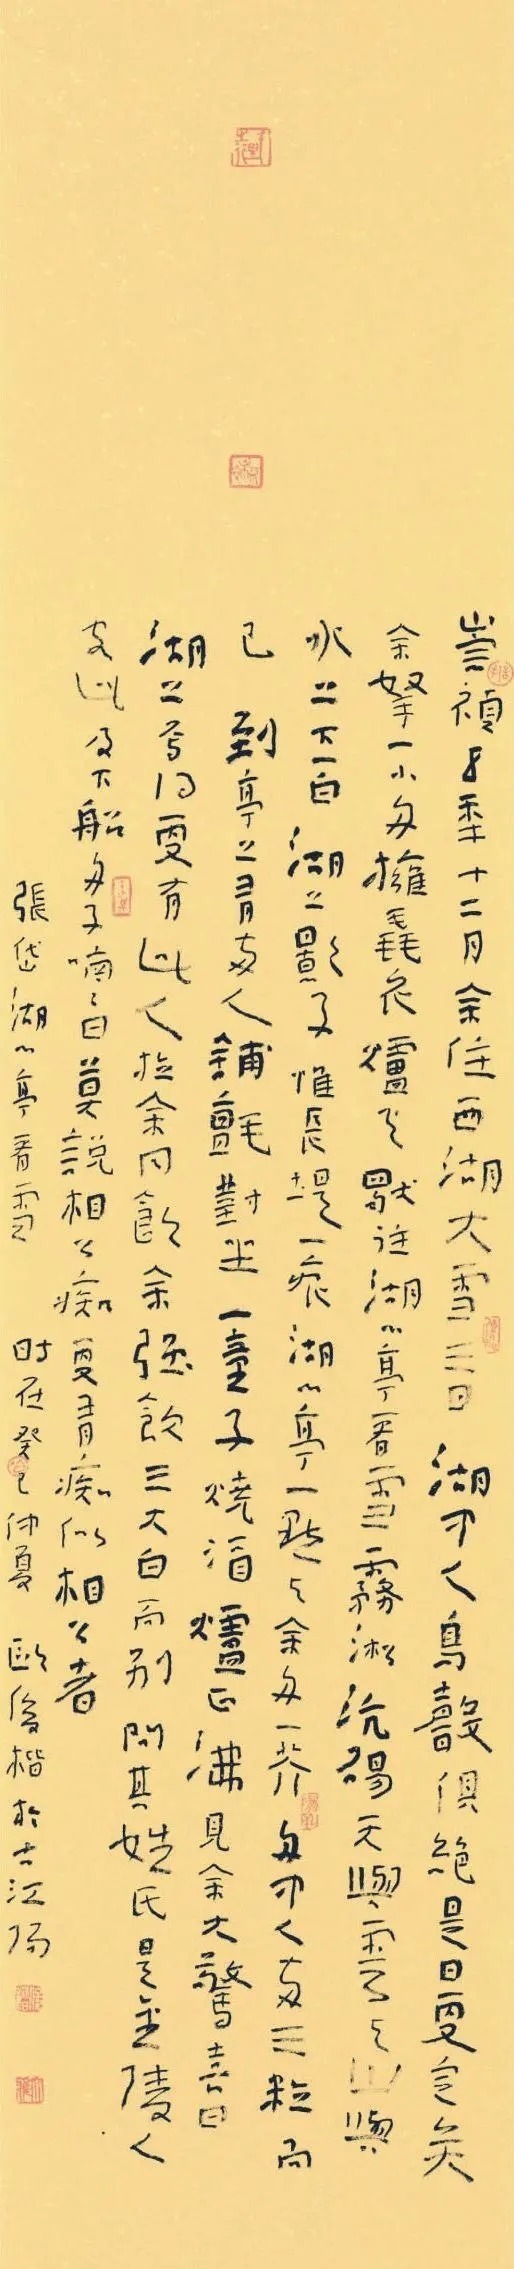 崇禎五年十二月余住西湖大雪三日湖中人鳥聲俱絕是日更定矣
余拏一小舟擁毳衣爐火獨往湖心亭看雪霧淞沆碭天與雲与山與
水上下一白湖上影子惟長堤一痕湖心亭一點与余舟一芥舟中人兩三粒而
已到亭上有兩人鋪氈對坐一童子燒酒爐正沸見余大驚喜曰
湖上焉得更有此人拉余同飲余強飲三大白而別問其姓氏是金陵人
客此及下船舟子喃喃曰莫說相公痴更有痴似相公者
張岱湖心亭看雪 時在癸巳仲夏 歐楷於古江陽